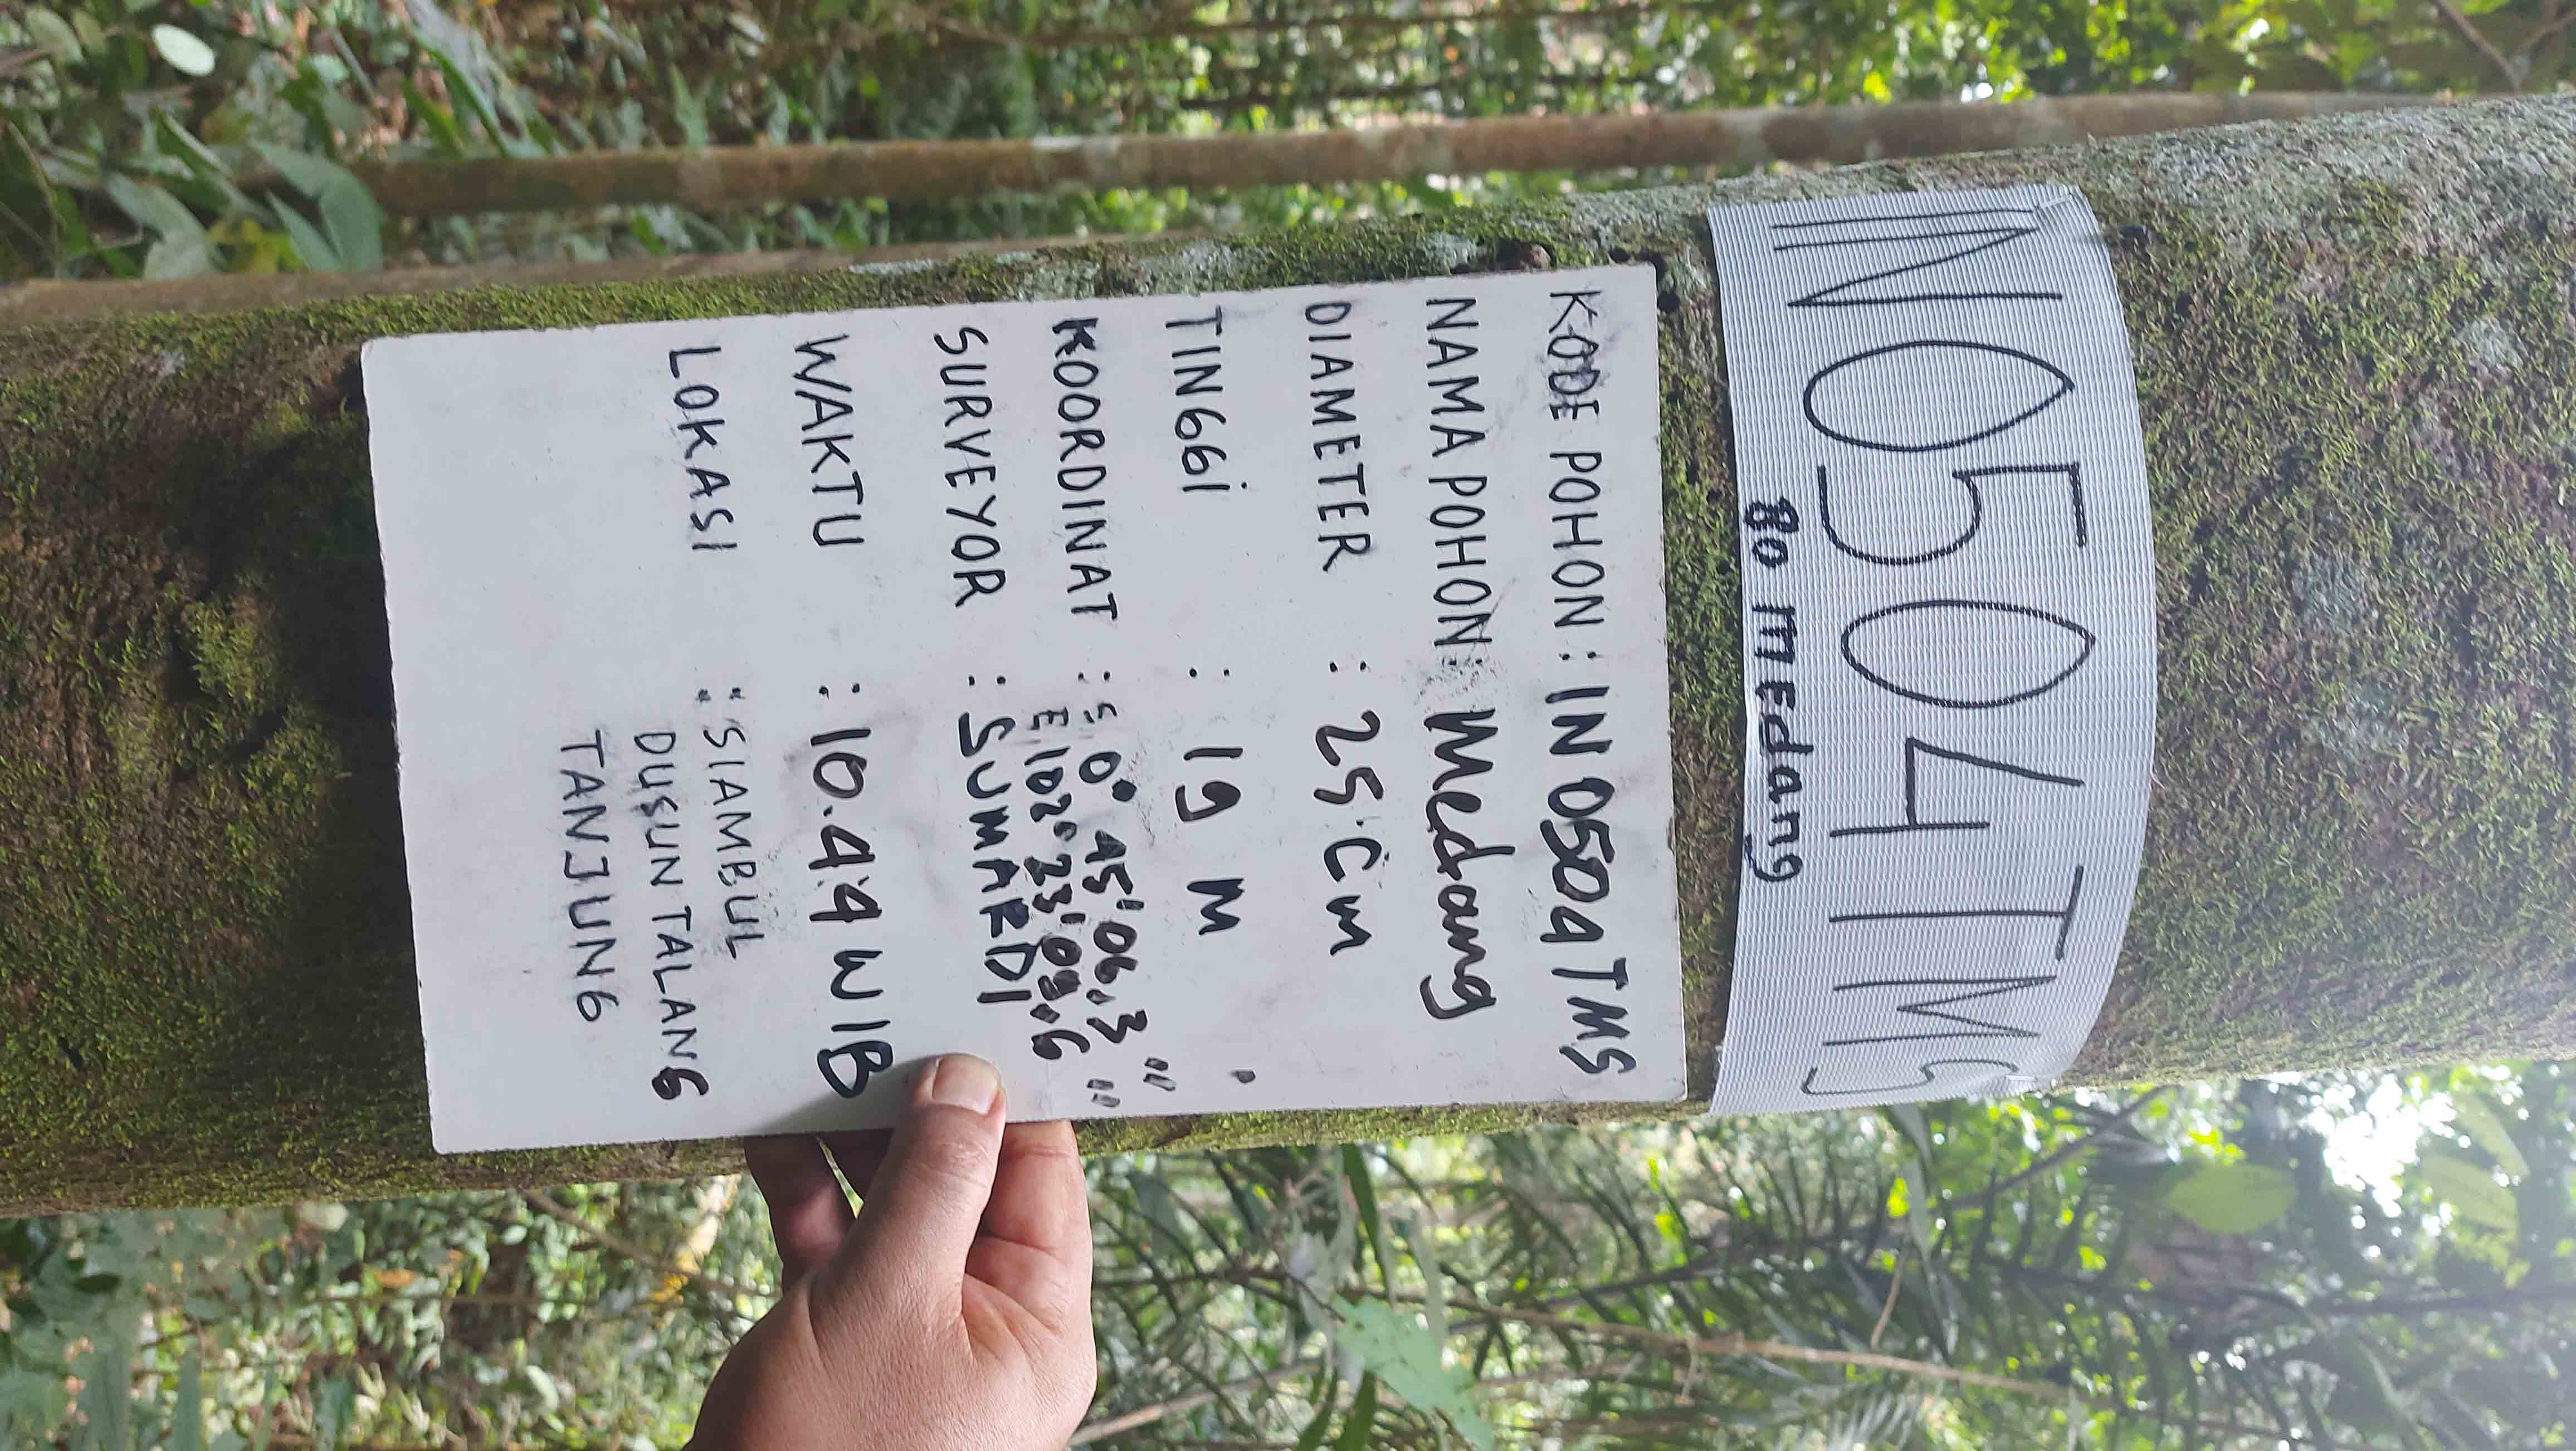 IN0504TMS
80 Medang
KODE POHON : IN 0504 TMS
NAMA POHON : Medang
DIAMETER : 25 Cm
TINGGi : 19 M
KOORDINAT : S 0° 45' 06.3"
E 102° 23' 09.6"
SURVEYOR : SUMARDI
WAKTU : 10.44 WIB
LOKASI : SIAMBUL
DUSUN TALANG
TANJUNG